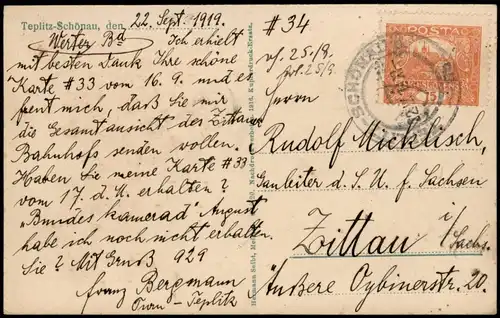 Teplitz-Schönau, den 22. Sept. 1919.
Werter Bd Ich erhielt
mit besten Dank Ihre schöne
Karte #33 vom 16. 9. und es
freut mich, daß Sie mir
die Gesamtansicht des Zittauer
Bahnhofs senden wollen.
Haben Sie meine Karte #33
vom 17. d. M. erhalten?
"Bundeskamerad" August
habe ich noch nicht erhalten.
Sie? Mit Gruß 929
Franz Bergmann
Turn-Teplitz
#34
25/9.
25/9.
POSTA
Herrn
Rudolf Micklisch,
Gauleiter d. I. U. f. Sachsen
Zittau i/Sachs.
Äußere Oybinerstr. 20.